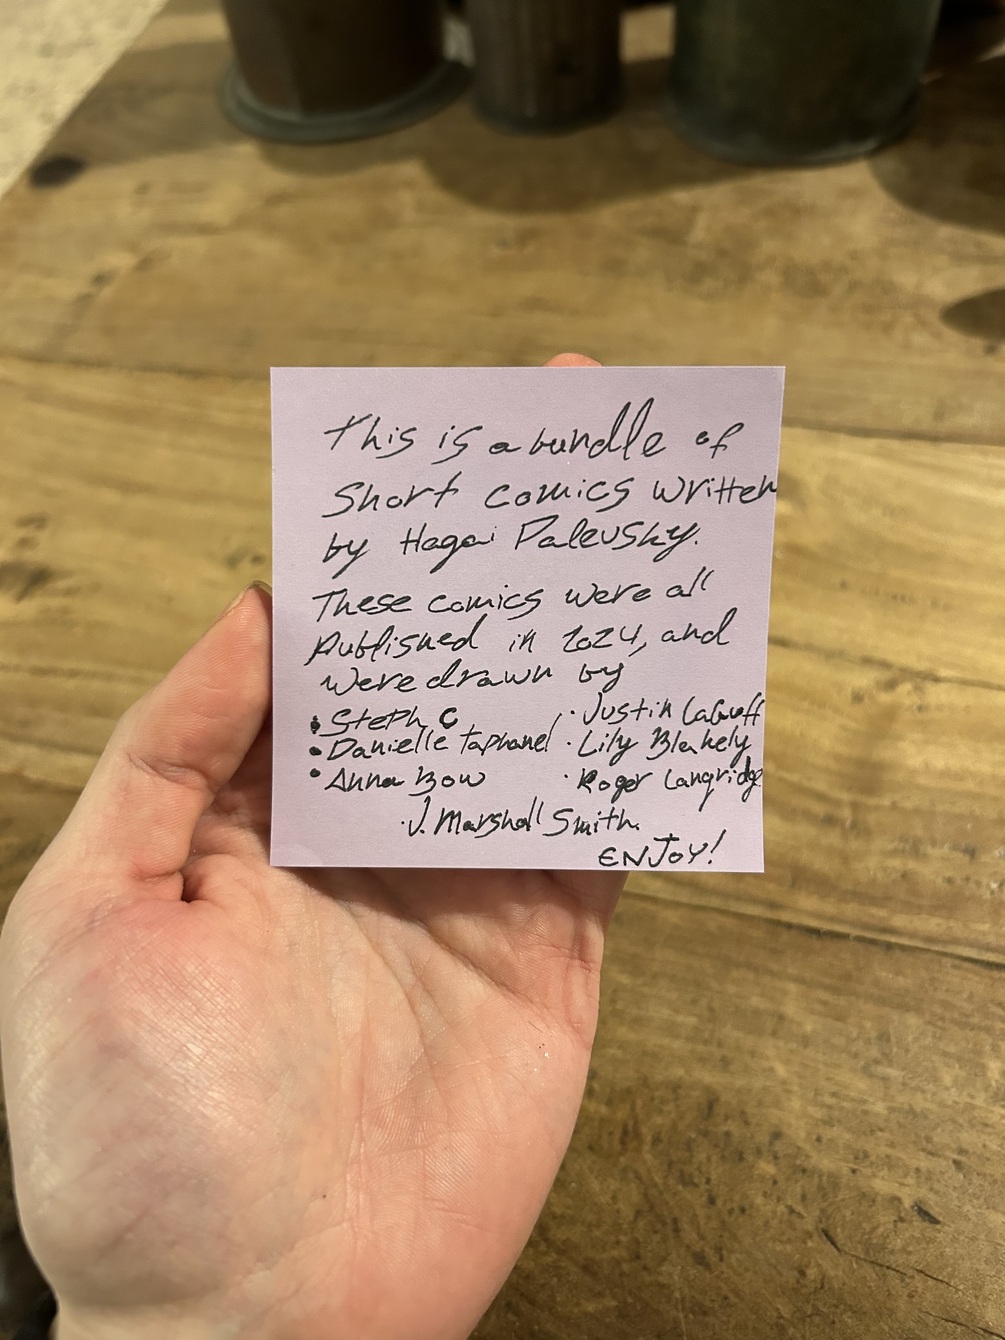 This is a bundle of
Short comics written
by Hagai Palevsky.
These comics were all
Published in 2024, and
were drawn by
• Steph C
• Danielle Taphanel
• Anna Bow
• Justin LaGuff
• Lily Blakely
• Roger Langridge
• J. Marshall Smith.
ENJOY!